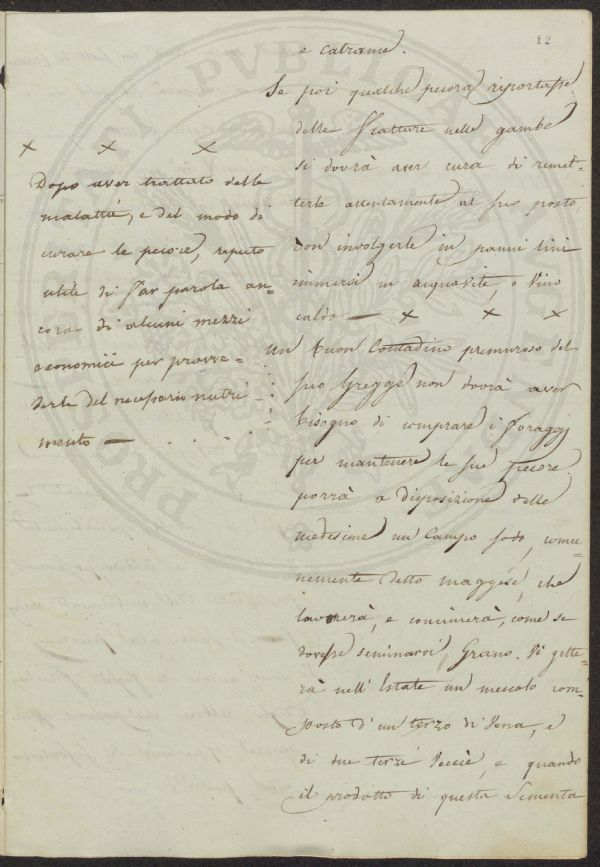 12
e catrame.
Se poi qualche pecora riportasse
delle fratture nelle gambe
si dovrà aver cura di rimet-
terle attentamente al suo posto
con involgerle in panni lini
immersi in acquavite, o Vino
caldo — × × ×
× × ×
Dopo aver trattato delle
malattie, e del modo di
curare le pecore, reputo
utile di far parola an-
cora di alcuni mezzi
economici per provve-
derle del necessario nutri
mento —
Un buon Contadino premuroso del
suo Gregge non dovrà aver
bisogno di comprare i foraggj
per mantenere le sue pecore
porrà a disposizione delle
medesime un Campo sodo, comu-
nemente detto maggese, che
lavorerà, e concimerà, come se
dovesse seminarvi Grano. Vi gette-
rà nell' Estate un mescolo com-
posto d' un terzo di Vena, e
di due terzi Veccie, e quando
il prodotto di questa Sementa